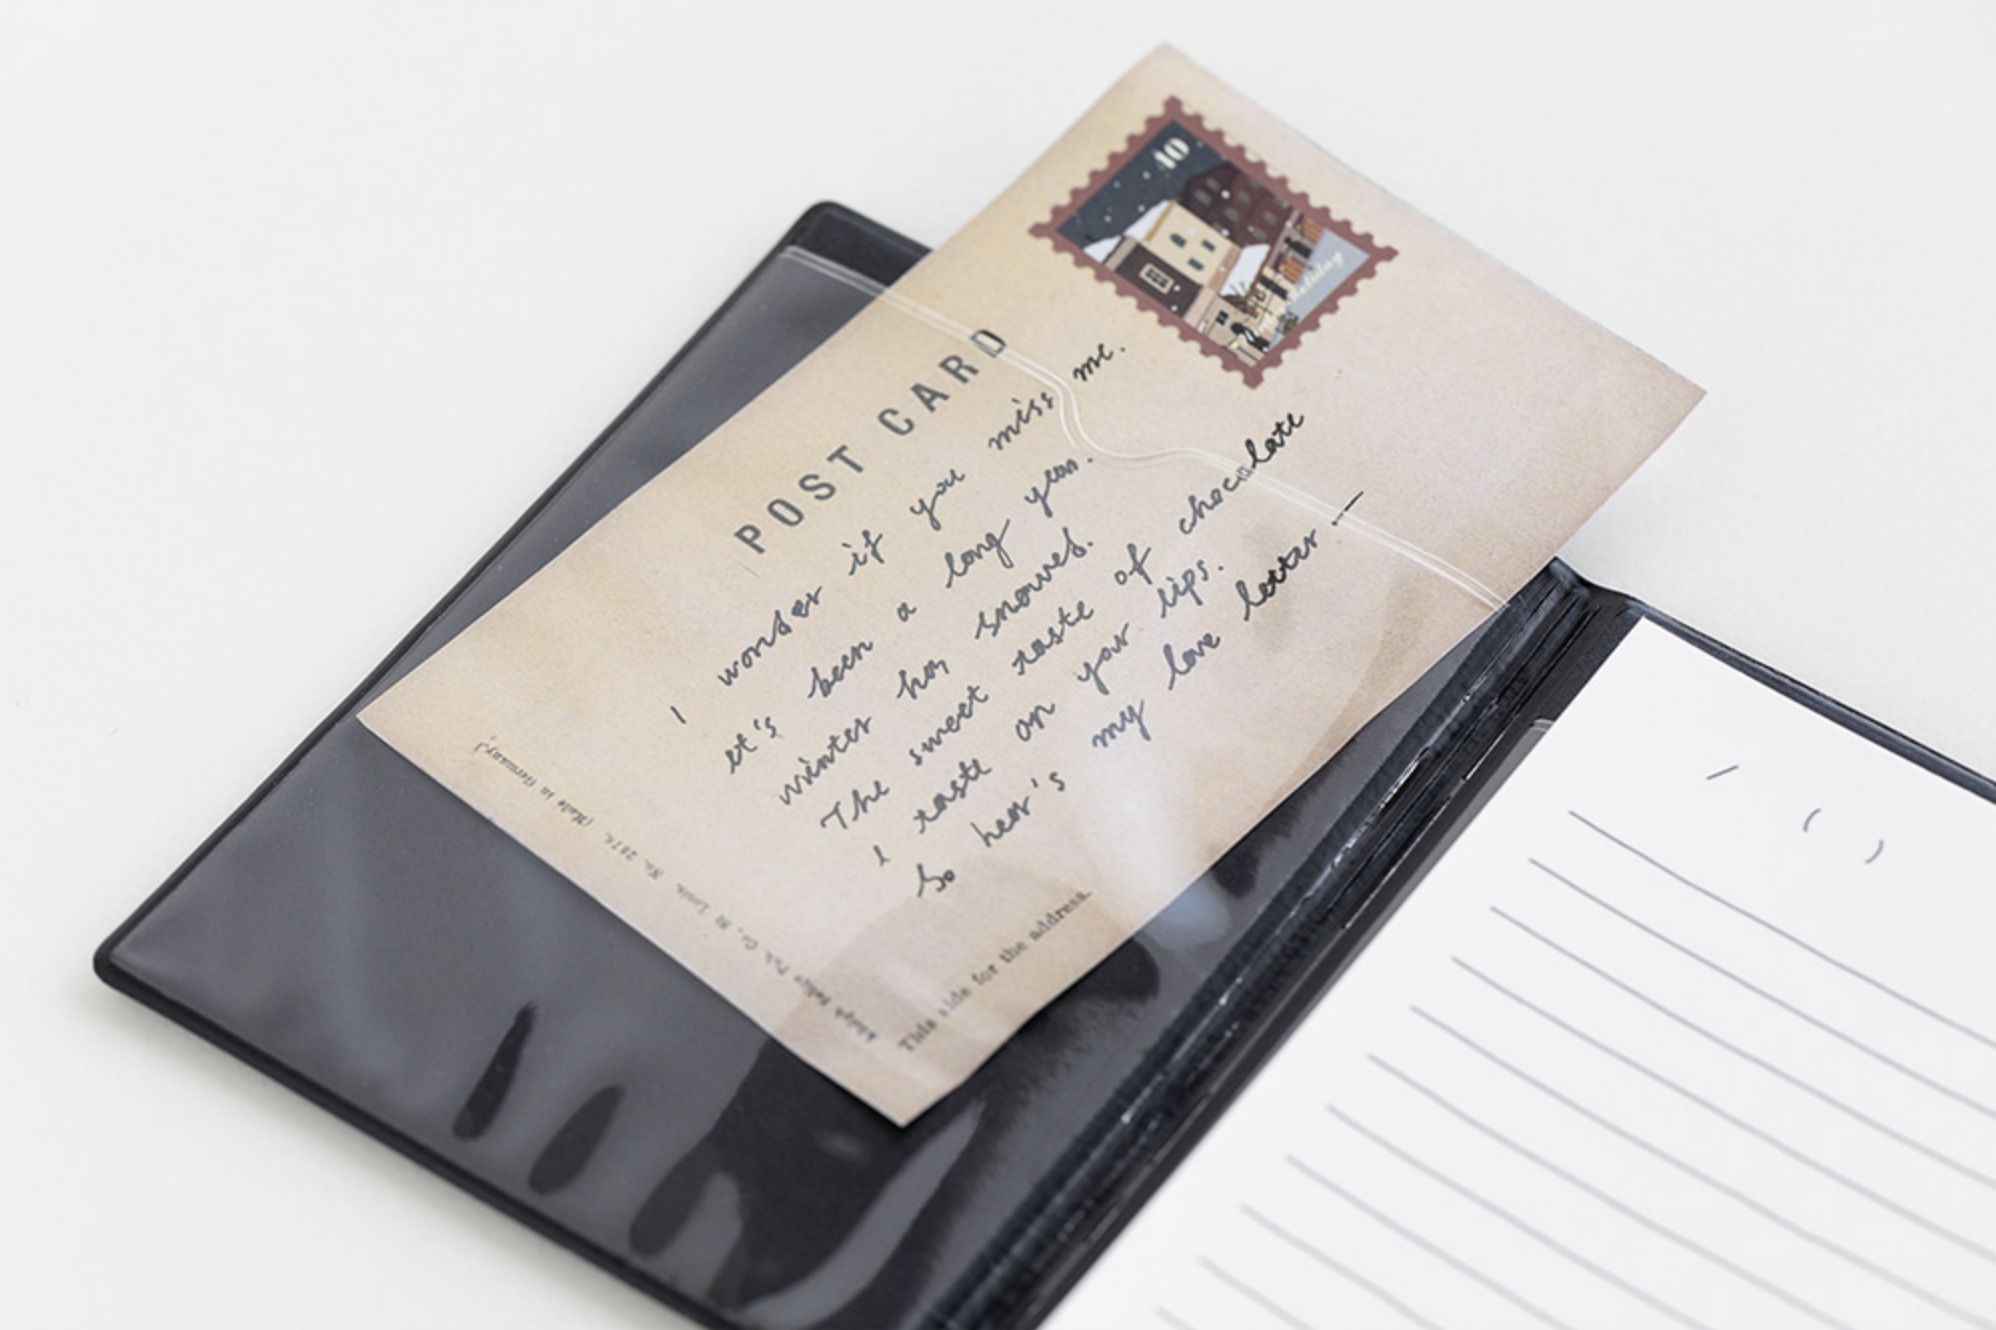 10
Holiday
POST CARD
I wonder if you miss me.
et's been a long year.
winter has snowed.
The sweet taste of chocolate
I taste on your lips.
So her's my love letter —
This side for the address.
Pub. Co., St Louis, No. 2874. (Made in Germany.)
/ ( )